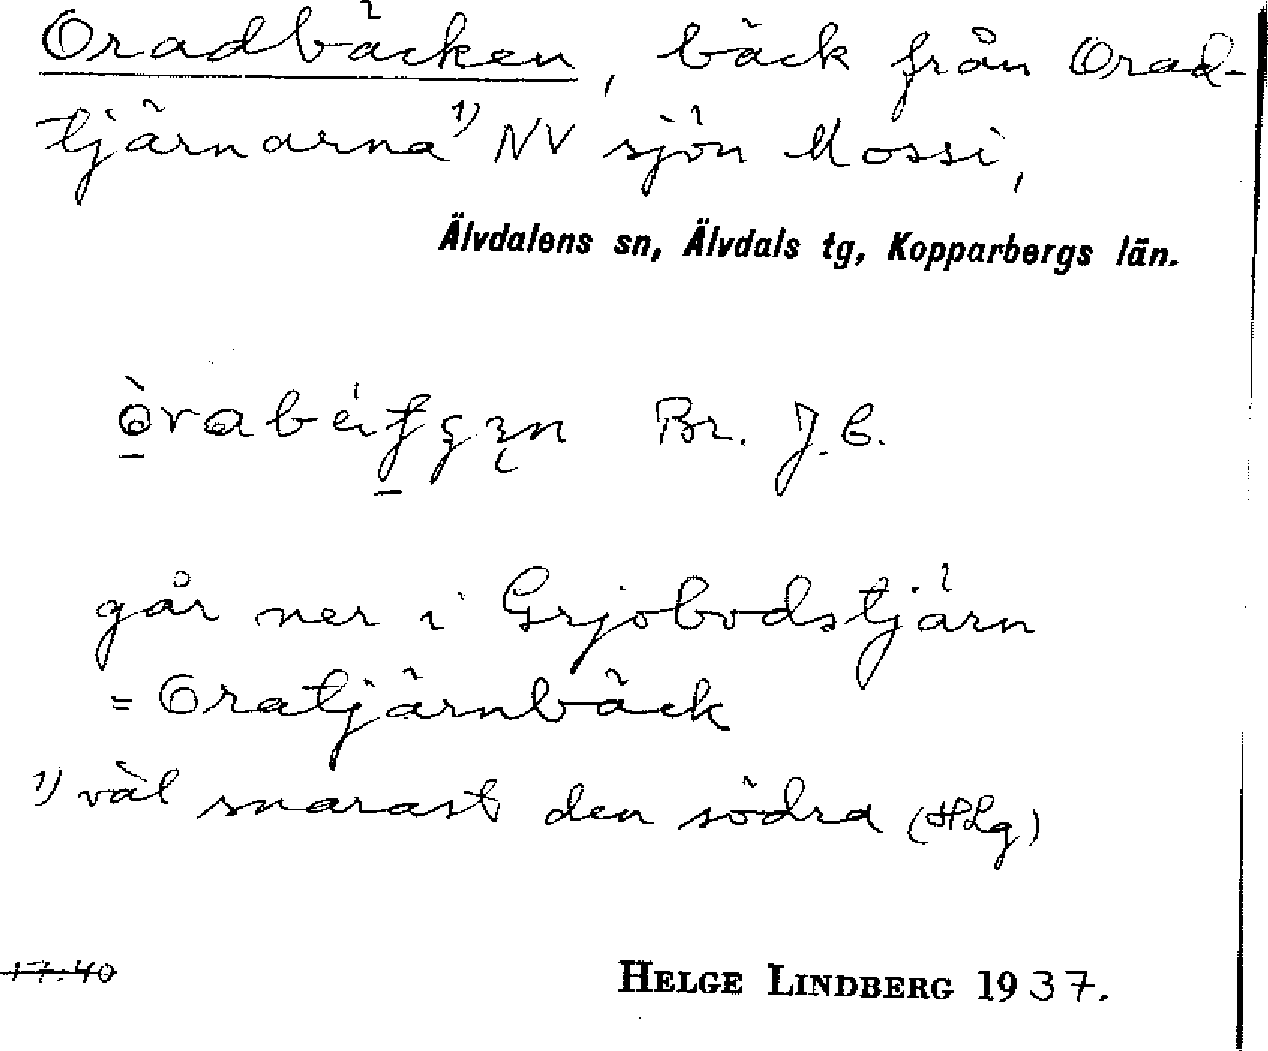 Oradbäcken, bäck från Orad-
tjärnarna 1) NV sjön Mossi,
Älvdalens sn, Älvdals tg, Kopparbergs län.
Br. J. E.
går ner i Grjobodstjärn
= Oratjärnbäck
1) väl snarast den södra (HLg)
17.40
HELGE LINDBERG 1937.